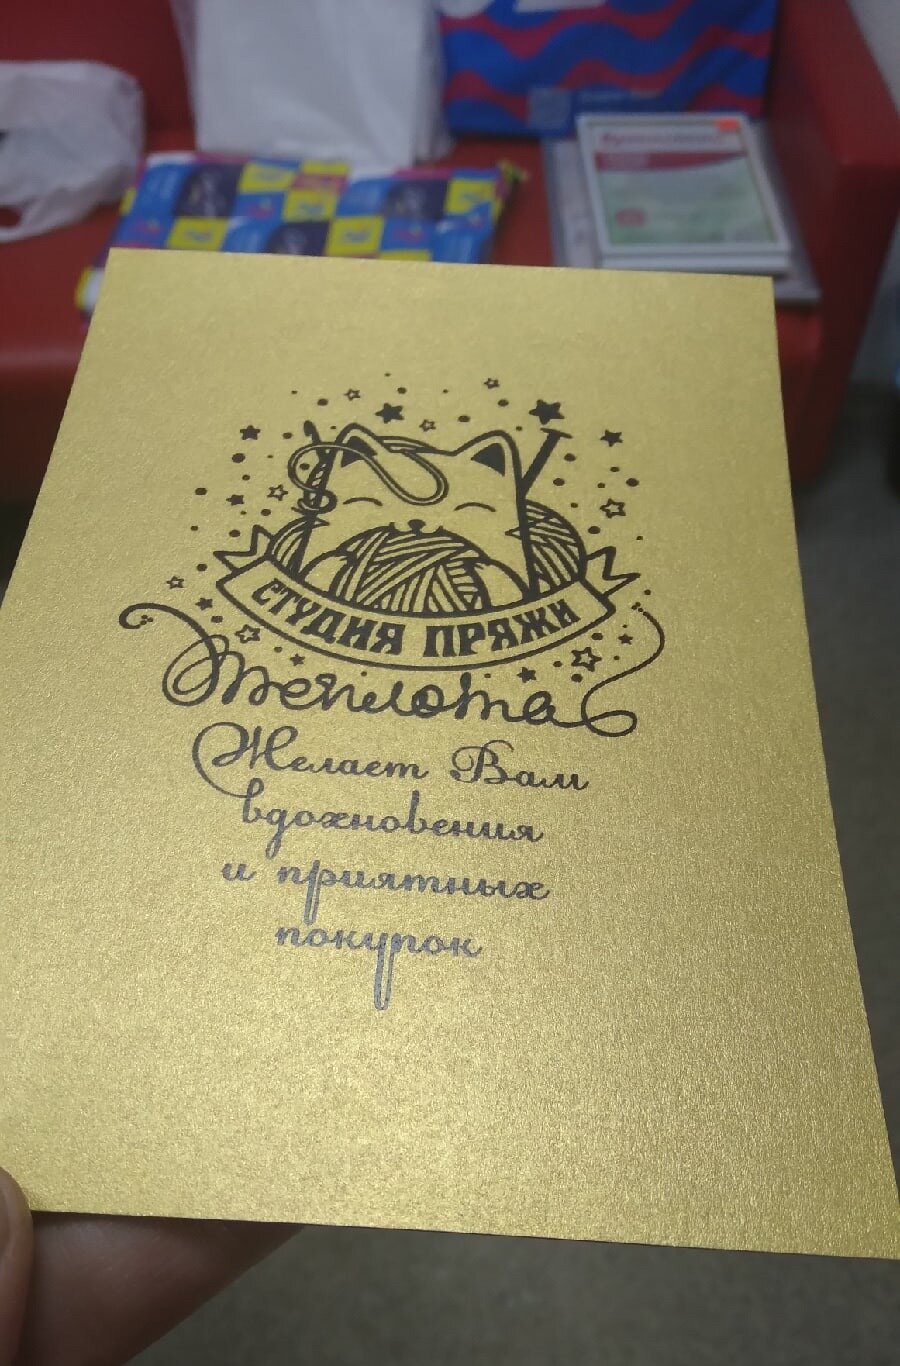 СТУДИЯ ПРЯЖИ
Теплота
Желает Вам
вдохновения
и приятных
покупок